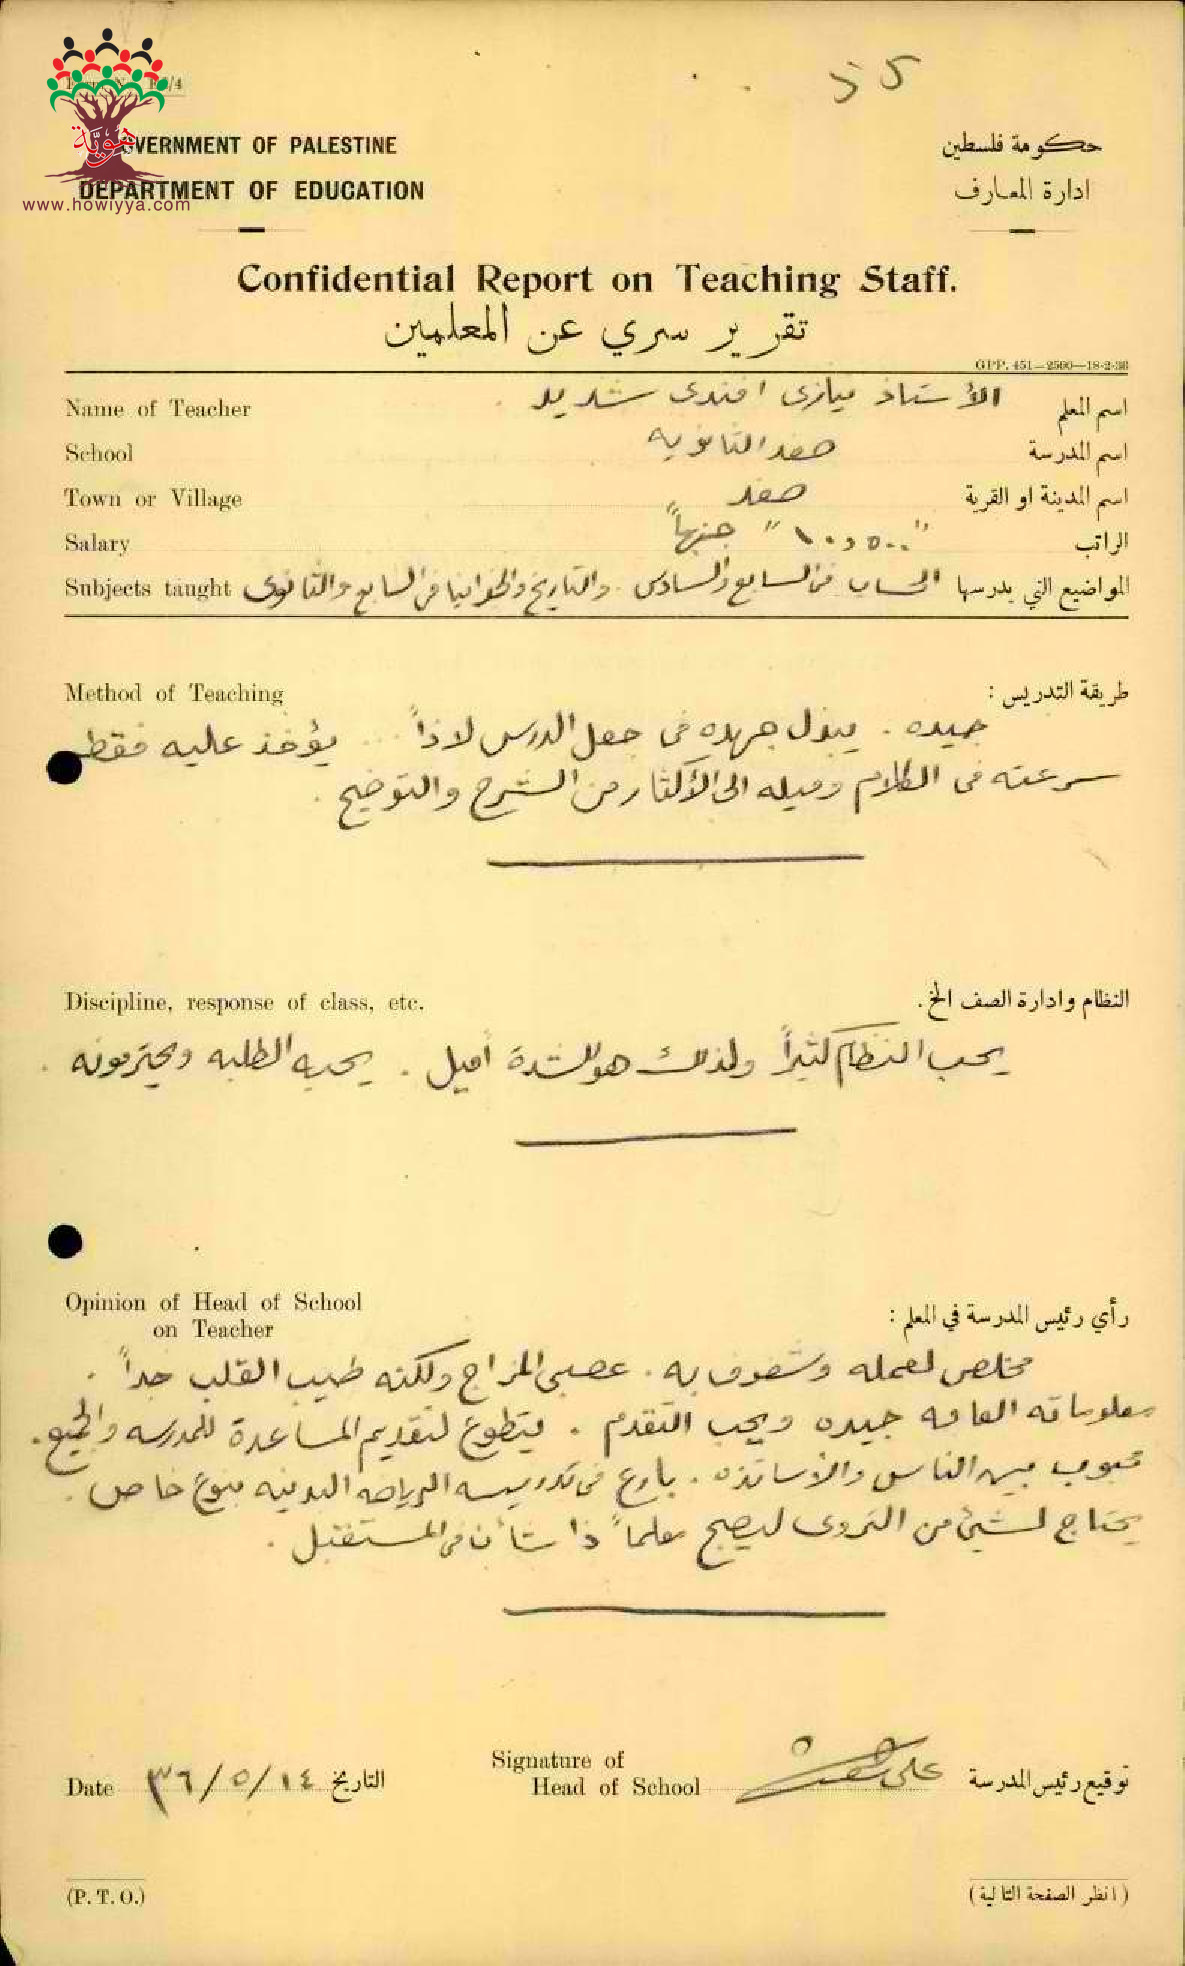 هوية
www.howiyya.com
GOVERNMENT OF PALESTINE
DEPARTMENT OF EDUCATION
حكومة فلسطين
ادارة المعارف
Confidential Report on Teaching Staff.
تقرير سري عن المعلمين
GPP. 451—2500—18-2-36
Name of Teacher الأستاذ نيازى افندى شديد اسم المعلم
School صفد الثانويه اسم المدرسة
Town or Village صفد اسم المدينة او القرية
Salary "١٠٥٠٠" جنيهاً الراتب
Subjects taught المواضيع التي يدرسها الحساب فى السابع والسادس . والتاريخ والجغرافيا فى السابع والثانوى
Method of Teaching طريقة التدريس :
جيده . يبذل جهده فى جعل الدرس لاذاً ... يؤخذ عليه فقط
سرعته فى الكلام وميله الى الأكثار من الشرح والتوضيح .
Discipline, response of class, etc. النظام وادارة الصف الخ .
يحب النظام كثيراً ولذلك هو للشدة أميل . يحبه الطلبه ويحترمونه .
Opinion of Head of School
on Teacher
رأي رئيس المدرسة في المعلم :
مخلص لعمله وشغوف به . عصبى المزاج ولكنه طيب القلب جداً .
معلوماته العامه جيده ويحب التقدم . يتطوع لتقديم المساعدة للمدرسه والجميع .
محبوب بين الناس والأساتذه . بارع فى تدريسه الرياضه البدنيه بنوع خاص .
يحتاج لشئ من التروى ليصبح معلماً ذا شأن فى المستقبل .
Date ٣٦/٥/١٤ التاريخ
Signature of
Head of School
على توقيع رئيس المدرسة
(P. T. O.)
( انظر الصفحة التالية )